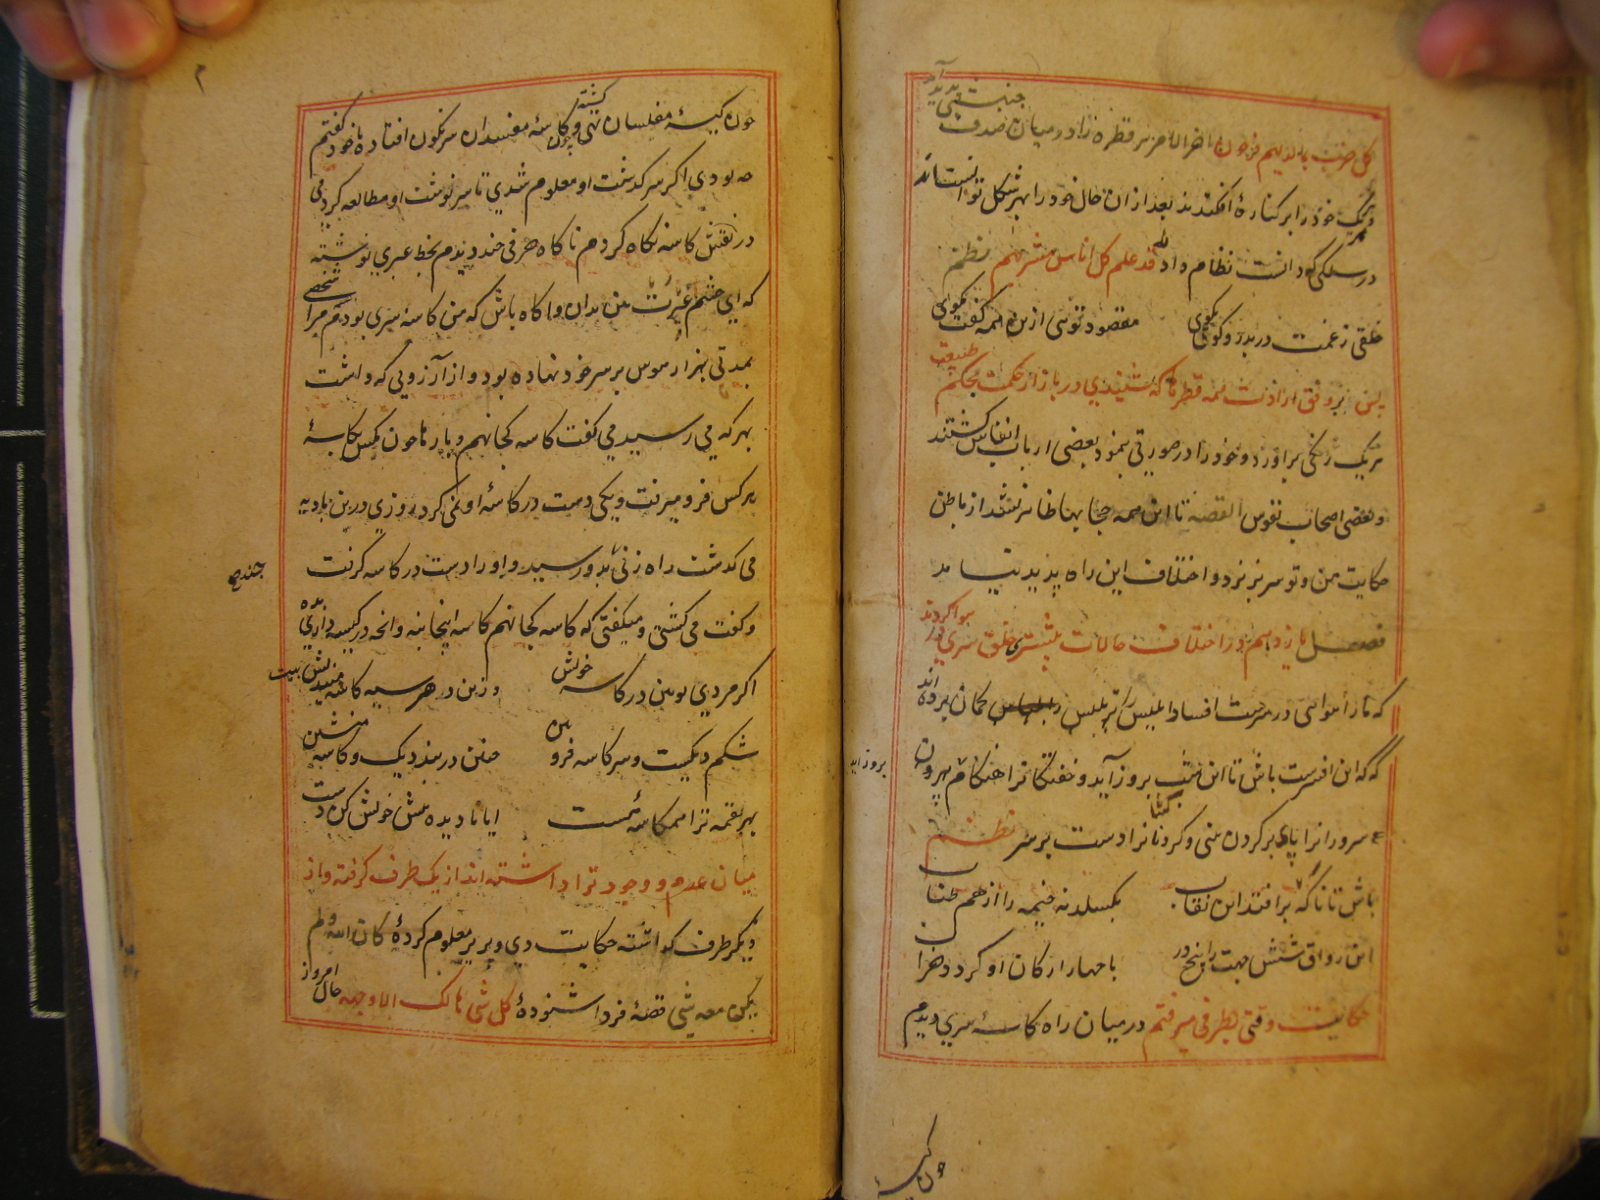 کل حزب بما لدیهم فرحون آخر الامر هر قطره را در میان صدف
جنبشی پدید آمد
خود را بر کناره افکندند بعد از ان حال خود را بهر شکل توانستند
در سلکی که داشت نظام داد قد علم کل اناس مشربهم نظم
خلقی ز غمت در بدر و کوی بکوی مقصود توئی ازین همه گفت بگوی
پس بر وفق ارادت همه قطرها که شنیدی در بازار حکمت بحکم
هر یک رنگی براورد و خود را در صورتی بنمود بعضی ارباب انفاس گشتند
و بعضی اصحاب نفوس القصه تا این همه حجابها ظاهر نشد از باطن
حکایت من و تو سر بر نزد و اختلاف این راه پدید نیامد
فصل یازدهم در اختلاف حالات بیشتری خلق سری در هوا کردند
که ما را هوائی در سرست افساد ابلیس را تلبیس گمان برده اند
که که این افسرست باش تا این شب بروز آید و خفتگان را هنگام بیرون
بروز آید
سروران را پای بر گردن بینی و گردنان را دست بر سر نظم
باش تا ناگه بر افتد این نقاب بگسلد نه خیمه را از هم طناب
این رواق شش جهت را بیخ در با چهار ارکان او گردد خراب
حکایت وقتی بطرفی میرفتم در میان راه کاسهٔ سری دیدم
چون کیسهٔ
چون کیسهٔ مفلسان تهی گشته و چون کاسهٔ مفسدان سرنگون افتاده با خود گفتم
چه بودی اگر سرگذشت او معلوم شدی تا سرنوشت او مطالعه کردمی
در نقش کاسه نگاه کردم ناگاه حرفی چند دیدم بخط عبری نوشته
که ای چشم عبرت بین بدان و آگاه باش که من کاسه سری بودم مرا شخصی
بمدتی بهزار هوس بر سر خود نهاده بود و از آرزویی که داشت
بهر که می رسید می گفت کاسه کجا نهم و بارها چون مگس بکاسهٔ
هر کس فرو میرفت و یکی دست در کاسهٔ او نمی کرد روزی درین بادیه
می گذشت راه زنی بدو رسید و او را دست در کاسه گرفت
و گفت می گشتی و میگفتی که کاسه کجا نهم کاسه اینجا بنه و انچه در کیسه داری بده
اگر مردی ببین در کاسه خویش وزین در هر سیه کاسه میندیش
بیت
شکم دیگیست و سر کاسه فرو بین چنین در بند دیک و کاسه منشین
بهر لقمه ترا هم کاسه هست ایا نادیده پیش خویش کن دست
میان عدم و وجود ترا داشته اند از یک طرف گرفته و از
دیگر طرف گذاشته حکایت دی و پریر معلوم کردهٔ کان الله و لم
یکن معه شی قصهٔ فردا شنودهٔ کل شی هالک الا وجهه حال امروز